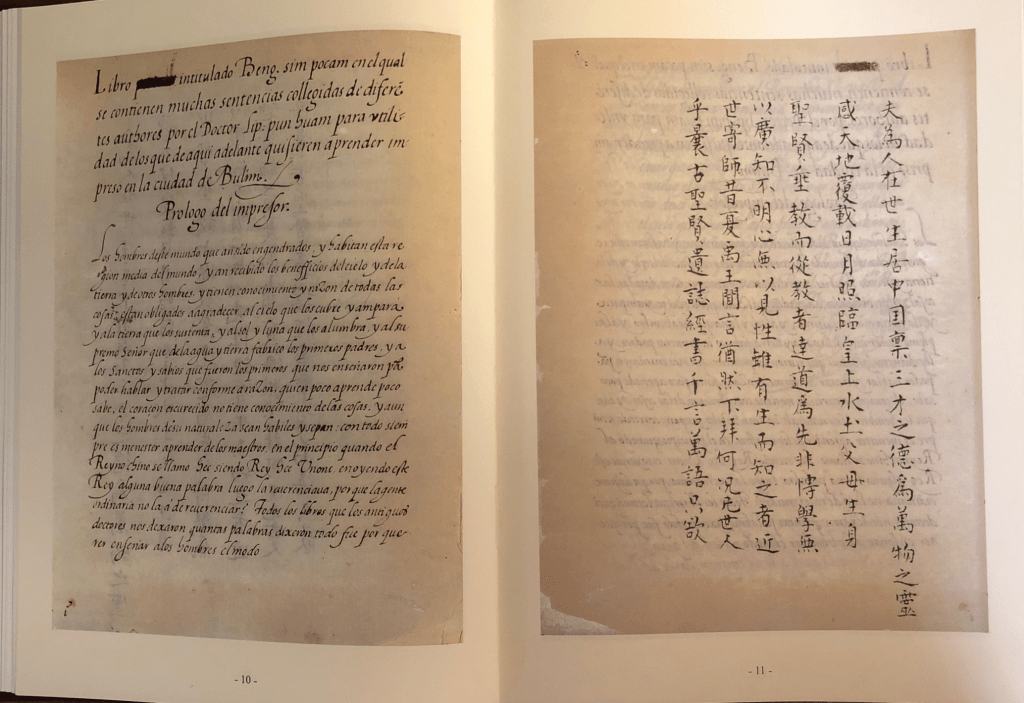 Libro intitulado Beng. sim pocam en el qual
se contienen muchas sentencias collegidas de diferē
tes authores por el Doctor Lip: pun huam para vtili-
dad de los que de aqui adelante quisieren aprender im
preso en la ciudad de Bulim.
Prologo del impresor.
Los hombres deste mundo que an sido engendrados, y habitan esta re
gion media del mundo, y an recibido los benefficios del cielo y de la
tierra y de otros hombres, y tienen conocimiento y raZon de todas las
cosas, estan obligados a agradecer al cielo que los cubre y ampara
y a la tierra que los sustenta, y al sol y luna que los alumbra, y al su
premo señor que de la agua y tierra fabrico los primeros padres, y a
los Sanctos y sabios que fueron los primeros que nos enseñaron pa
poder hablar y tratar conforme a raZon, quien poco aprende poco
sabe, el coraçon escurecido no tiene conocimiento de las cosas, y aun
que los hombres de su naturaleZa sean habiles y sepan: con todo siem
pre es menester aprender de los maestros, en el principio quando el
Reyno chino se llamo Hee siendo Rey Hee Vnone, en oyendo este
Rey alguna buena palabra luego la reuerenciaua, por que la gente
ordinaria no la a de reuerenciar? Todos los libros que los antiguos
doctores nos dexaron quantas palabras dixeron todo fue por que-
rer enseñar a los hombres el modo
- 10 -
夫為人在世生居中国禀三才之德為萬物之靈
感天地覆載日月照臨皇上水土父母生身
聖賢垂教而從教者達道為先非博學無
以廣知不明心無以見性雖有生而知之者近
世寄師昔夏禹王聞言猶然下拜何况凡世人
乎曩古聖賢遺誌經書千言萬語只欲
- 11 -